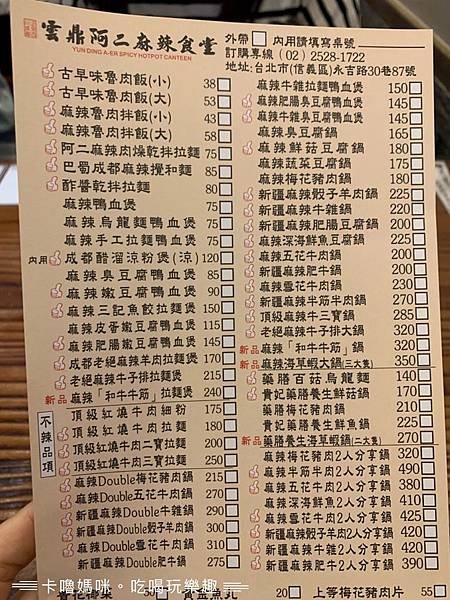 雲鼎阿二麻辣食堂
YUN DING A-ER SPICY HOTPOT CANTEEN
外帶 內用請填寫桌號
訂購專線 (02) 2528-1722
地址:台北市(信義區)永吉路30巷87號
古早味魯肉飯(小) 38
古早味魯肉飯(大) 53
麻辣魯肉拌飯(小) 43
麻辣魯肉拌飯(大) 58
阿二麻辣肉燥乾拌拉麵 75
巴蜀成都麻辣攪和麵 85
酢醬乾拌拉麵 80
麻辣鴨血煲 75
麻辣烏龍麵鴨血煲 75
麻辣手工拉麵鴨血煲 75
內用 成都醋溜涼粉煲(涼) 120
麻辣臭豆腐鴨血煲 90
麻辣嫩豆腐鴨血煲 90
麻辣三記魚餃拉麵煲 150
麻辣皮蛋嫩豆腐鴨血煲 115
麻辣肥腸嫩豆腐鴨血煲 145
成都老媽麻辣羊肉拉麵煲 170
老媽麻辣牛子排拉麵煲 215
新品 麻辣「和牛牛筋」拉麵煲 240
不辣品項
頂級紅燒牛肉細粉 175
頂級紅燒牛肉拉麵 180
頂級紅燒牛肉二寶拉麵 200
頂級紅燒牛肉三寶拉麵 250
麻辣Double梅花豬肉鍋 215
麻辣Double五花牛肉鍋 270
新疆麻辣Double牛雜鍋 290
新疆麻辣Double骰子羊肉鍋 300
麻辣Double雪花牛肉鍋 310
新疆麻辣Double肥牛鍋 275
麻辣牛雜拉麵鴨血煲 150
麻辣肥腸臭豆腐鴨血煲 145
麻辣牛雜臭豆腐鴨血煲 145
麻辣臭豆腐鍋 165
麻辣鮮菇豆腐鍋 180
麻辣蔬菜豆腐鍋 170
麻辣梅花豬肉鍋 180
新疆麻辣骰子羊肉鍋 225
新疆麻辣牛雜鍋 220
新疆麻辣肥腸豆腐鍋 200
麻辣深海鮮魚豆腐鍋 225
麻辣五花牛肉鍋 200
新疆麻辣肥牛鍋 200
麻辣雪花牛肉鍋 230
新疆麻辣半筋半肉鍋 250
頂級麻辣牛三寶鍋 285
老媽麻辣牛子排大鍋 320
新品 麻辣「和牛牛筋」鍋 320
新品 麻辣海草蝦大鍋(三大隻) 350
藥膳百菇烏龍麵 140
貴妃藥膳養生鮮菇鍋 170
藥膳梅花豬肉鍋 210
貴妃藥膳養生鮮魚鍋 225
新品 藥膳養生海草蝦鍋(二大隻) 270
麻辣梅花豬肉2人分享鍋 320
麻辣半筋半肉2人分享鍋 490
麻辣五花牛肉2人分享鍋 380
麻辣深海鮮魚2人分享鍋 410
麻辣雪花牛肉2人分享鍋 425
新疆麻辣骰子羊肉2人分享鍋 420
新疆麻辣牛雜2人分享鍋 420
新疆麻辣肥牛2人分享鍋 390
20
上等梅花豬肉片 55
卡嚕媽咪。吃喝玩樂趣